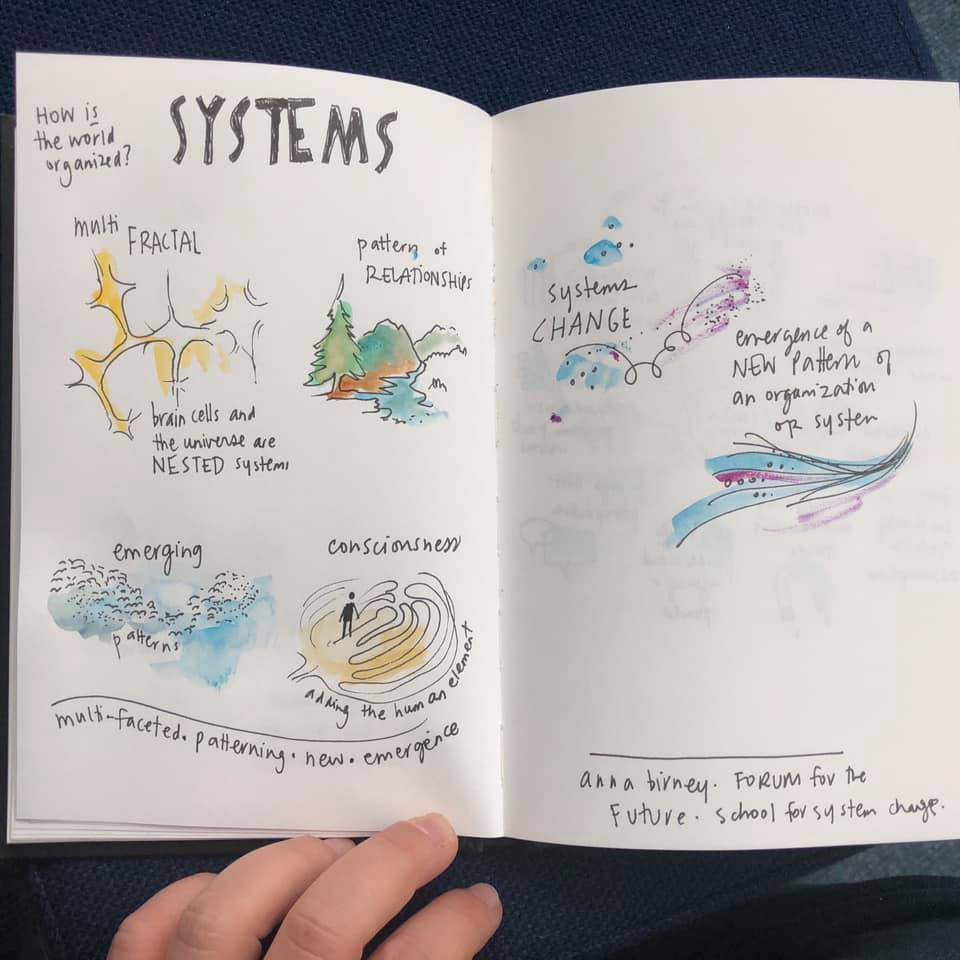 HOW is
the world
organized?
SYSTEMS
multi
FRACTAL
brain cells and
the universe are
NESTED systems
pattern of
RELATIONSHIPS
emerging
patterns
consciousness
adding the human element
multi-faceted. patterning. new. emergence
systems
CHANGE
emergence of a
NEW pattern of
an organization
or system
anna birney. FORUM for the
Future. school for system change.